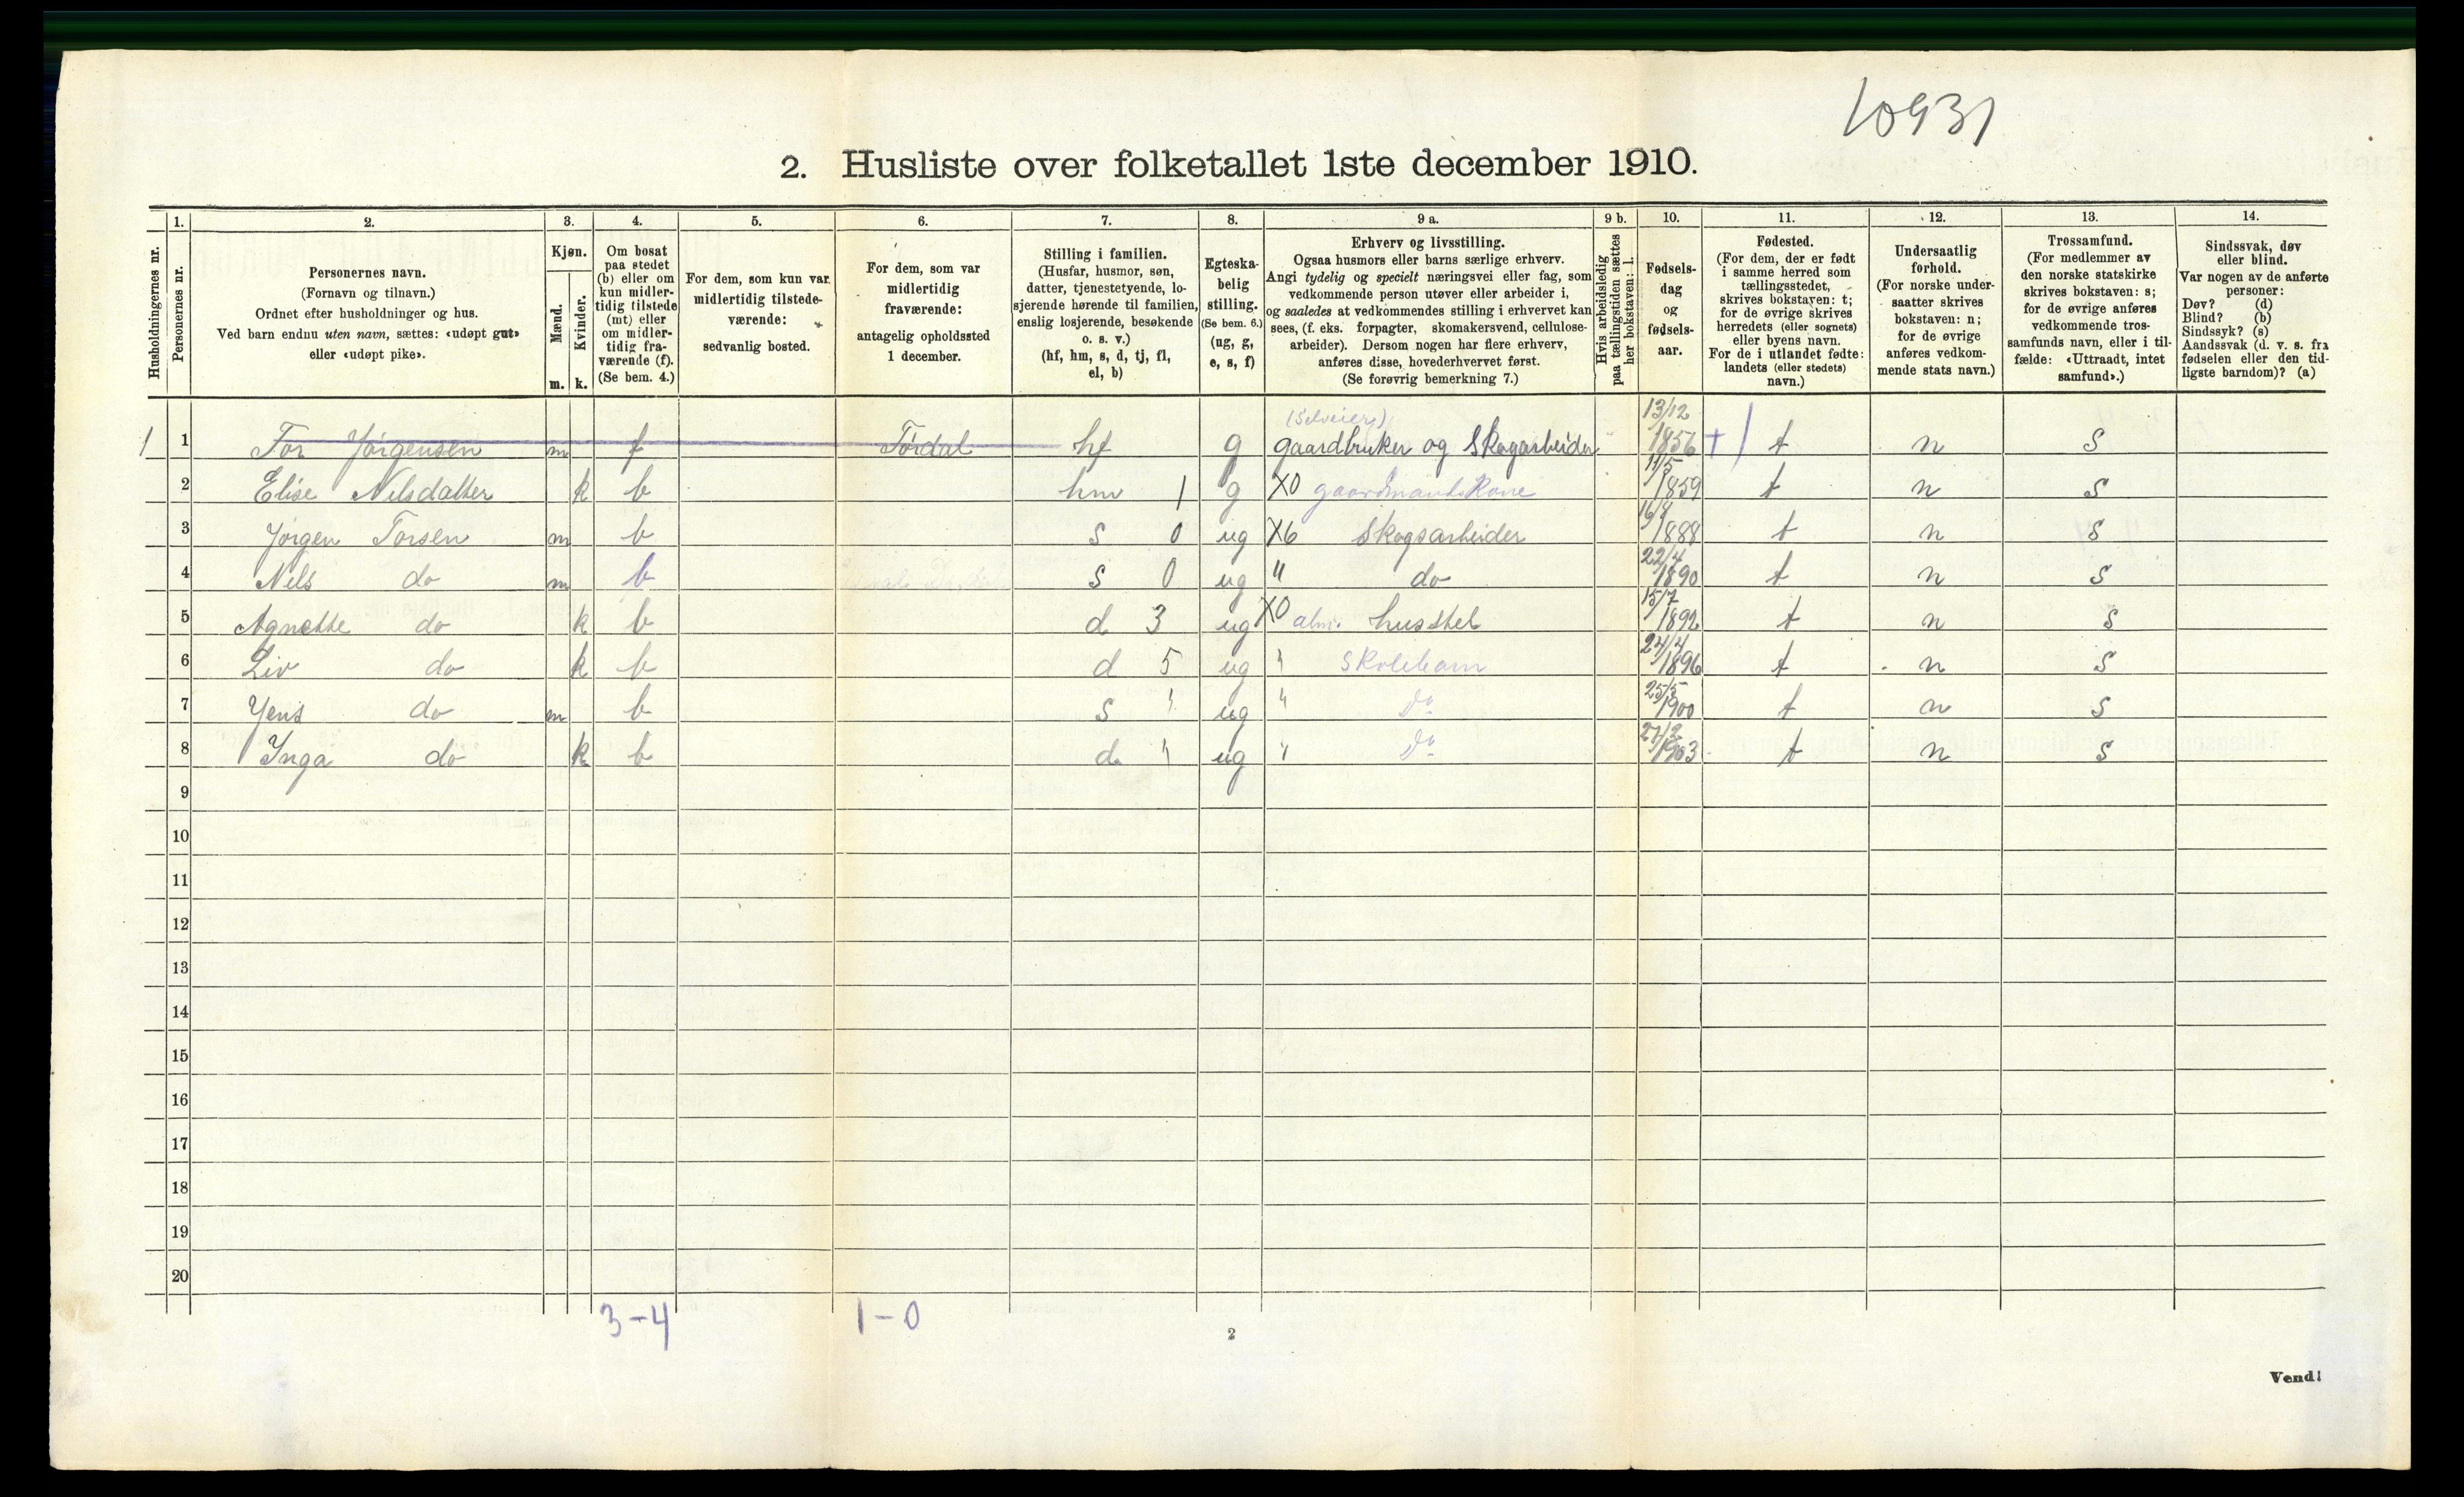 10931
2. Husliste over folketallet 1ste december 1910.
Husholdningernes nr.
1.
Personernes nr.
2.
Personernes navn.
(Fornavn og tilnavn.)
Ordnet efter husholdninger og hus.
Ved barn endnu uten navn, sættes: «udøpt gut»
eller «udøpt pike».
3.
Kjøn.
Mænd.
m.
Kvinder.
k.
4.
Om bosat
paa stedet
(b) eller om
kun midler-
tidig tilstede
(mt) eller
om midler-
tidig fra-
værende (f).
(Se bem. 4.)
5.
For dem, som kun var
midlertidig tilstede-
værende:
sedvanlig bosted.
6.
For dem, som var
midlertidig
fraværende:
antagelig opholdssted
1 december.
7.
Stilling i familien.
(Husfar, husmor, søn,
datter, tjenestetyende, lo-
sjerende hørende til familien,
enslig losjerende, besøkende
o. s. v.)
(hf, hm, s, d, tj, fl,
el, b)
8.
Egteska-
belig
stilling.
(Se bem. 6.)
(ug, g,
e, s, f)
9 a.
Erhverv og livsstilling.
Ogsaa husmors eller barns særlige erhverv.
Angi tydelig og specielt næringsvei eller fag, som
vedkommende person utøver eller arbeider i,
og saaledes at vedkommendes stilling i erhvervet kan
sees, (f. eks. forpagter, skomakersvend, cellulose-
arbeider). Dersom nogen har flere erhverv,
anføres disse, hovederhvervet først.
(Se forøvrig bemerkning 7.)
9 b.
Hvis arbeidsledig
paa tællingstiden sættes
her bokstaven: l.
10.
Fødsels-
dag
og
fødsels-
aar.
11.
Fødested.
(For dem, der er født
i samme herred som
tællingsstedet,
skrives bokstaven: t;
for de øvrige skrives
herredets (eller sognets)
eller byens navn.
For de i utlandet fødte:
landets (eller stedets)
navn.)
12.
Undersaatlig
forhold.
(For norske under-
saatter skrives
bokstaven: n;
for de øvrige
anføres vedkom-
mende stats navn.)
13.
Trossamfund.
(For medlemmer av
den norske statskirke
skrives bokstaven: s;
for de øvrige anføres
vedkommende tros-
samfunds navn, eller i til-
fælde: «Uttraadt, intet
samfund».)
14.
Sindssvak, døv
eller blind.
Var nogen av de anførte
personer:
Døv? (d)
Blind? (b)
Sindssyk? (s)
Aandssvak (d. v. s. fra
fødselen eller den tid-
ligste barndom)? (a)
(Selveier) 13/12
1 1 Tor Jörgensen m f Tördal hf g gaardbruker og Skogarbeider 1856 + t n S
11/5
2 Elise Nilsdatter k b hm 1 g X0 gaardmands Kone 1859 t n S
3 Jörgen Torsen m b s 0 ug X6 Skogsarbeider 1888 t n S
22/4
4 Nils do m b s 0 ug " do 1890 t n S
15/7
5 Agnethe do k b d 3 ug X0 alm. husstel 1892 t n S
6 Liv do k b d 5 ug " Skolebarn 1896 t n S
25/5
7 Jens do m b s " ug " Do 1900 t n S
8 Inga do k b d " ug " Do 1903 t n S
9
10
11
12
13
14
15
16
17
18
19
20
3-4 1-0
2
Vend!